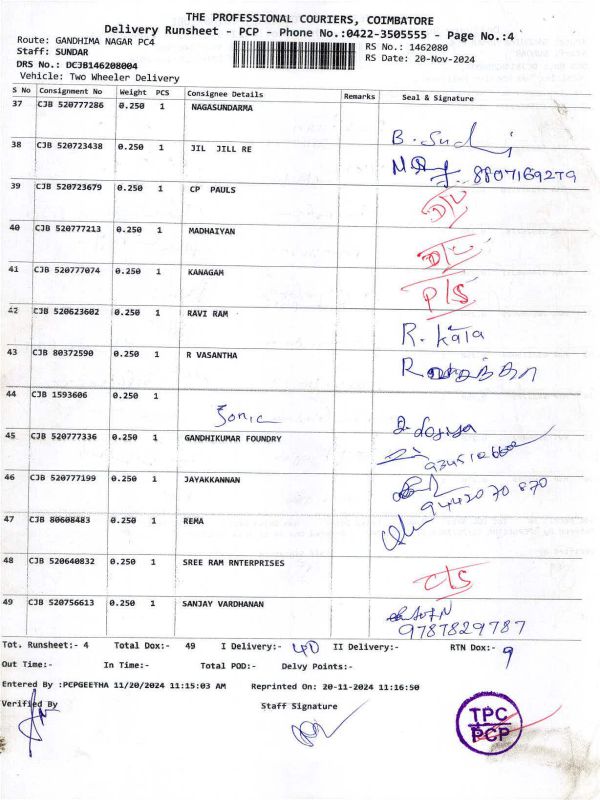 THE PROFESSIONAL COURIERS, COIMBATORE
Delivery Runsheet - PCP - Phone No.:0422-3505555 - Page No.:4
Route: GANDHIMA NAGAR PC4 RS No.: 1462080
Staff: SUNDAR RS Date: 20-Nov-2024
DRS No.: DCJB146208004
Vehicle: Two Wheeler Delivery
S No Consignment No Weight PCS Consignee Details Remarks Seal & Signature
37 CJB 520777286 0.250 1 NAGASUNDARMA
B. Sudhi
38 CJB 520723438 0.250 1 JIL JILL RE
8807169279
39 CJB 520723679 0.250 1 CP PAULS
D/L
40 CJB 520777213 0.250 1 MADHAIYAN
D/L
41 CJB 520777074 0.250 1 KANAGAM
P/S
42 CJB 520623602 0.250 1 RAVI RAM
R. Kala
43 CJB 80372590 0.250 1 R VASANTHA
44 CJB 1593606 0.250 1
Sonic
45 CJB 520777336 0.250 1 GANDHIKUMAR FOUNDRY
46 CJB 520777199 0.250 1 JAYAKKANNAN
9442070870
47 CJB 80608483 0.250 1 REMA
48 CJB 520640832 0.250 1 SREE RAM RNTERPRISES
C/S
49 CJB 520756613 0.250 1 SANJAY VARDHANAN
9787829787
Tot. Runsheet:- 4 Total Dox:- 49 I Delivery:- 40 II Delivery:- RTN Dox:- 9
Out Time:- In Time:- Total POD:- Delvy Points:-
Entered By :PCPGEETHA 11/20/2024 11:15:03 AM Reprinted On: 20-11-2024 11:16:50
Verified By Staff Signature
TPC
PCP